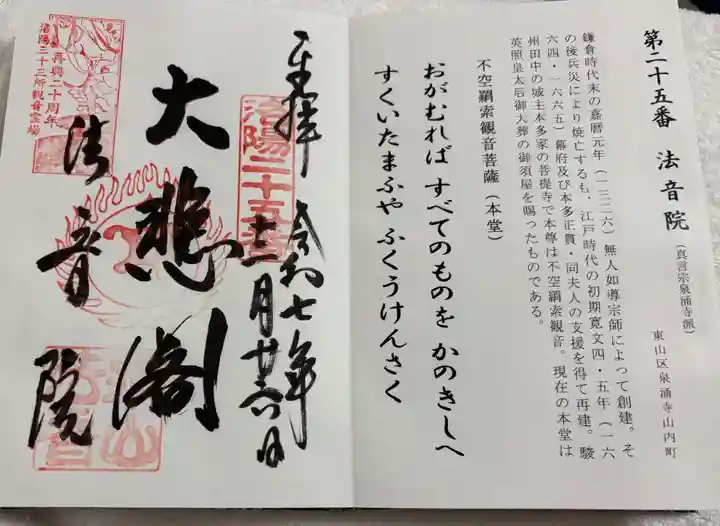 第二十五番 法音院(真言宗泉涌寺派)
東山区泉涌寺山内町
鎌倉時代末の嘉暦元年(一三二六)無人如導宗師によって創建。そ
の後兵災により焼亡するも、江戸時代の初期寛文四・五年(一六
六四・一六六五)幕府及び本多正貫・同夫人の支援を得て再建。駿
州田中の城主本多家の菩提寺で本尊は不空羂索観音。現在の本堂は
英照皇太后御大葬の御須屋を賜ったものである。
不空羂索観音菩薩(本堂)
おがむれば すべてのものを かのきしへ
すくいたまふや ふくうけんさく
奉拝 令和七年
十二月廿六日
洛陽二十五番
大悲閣
法音院
再興二十周年
洛陽三十三所観音霊場